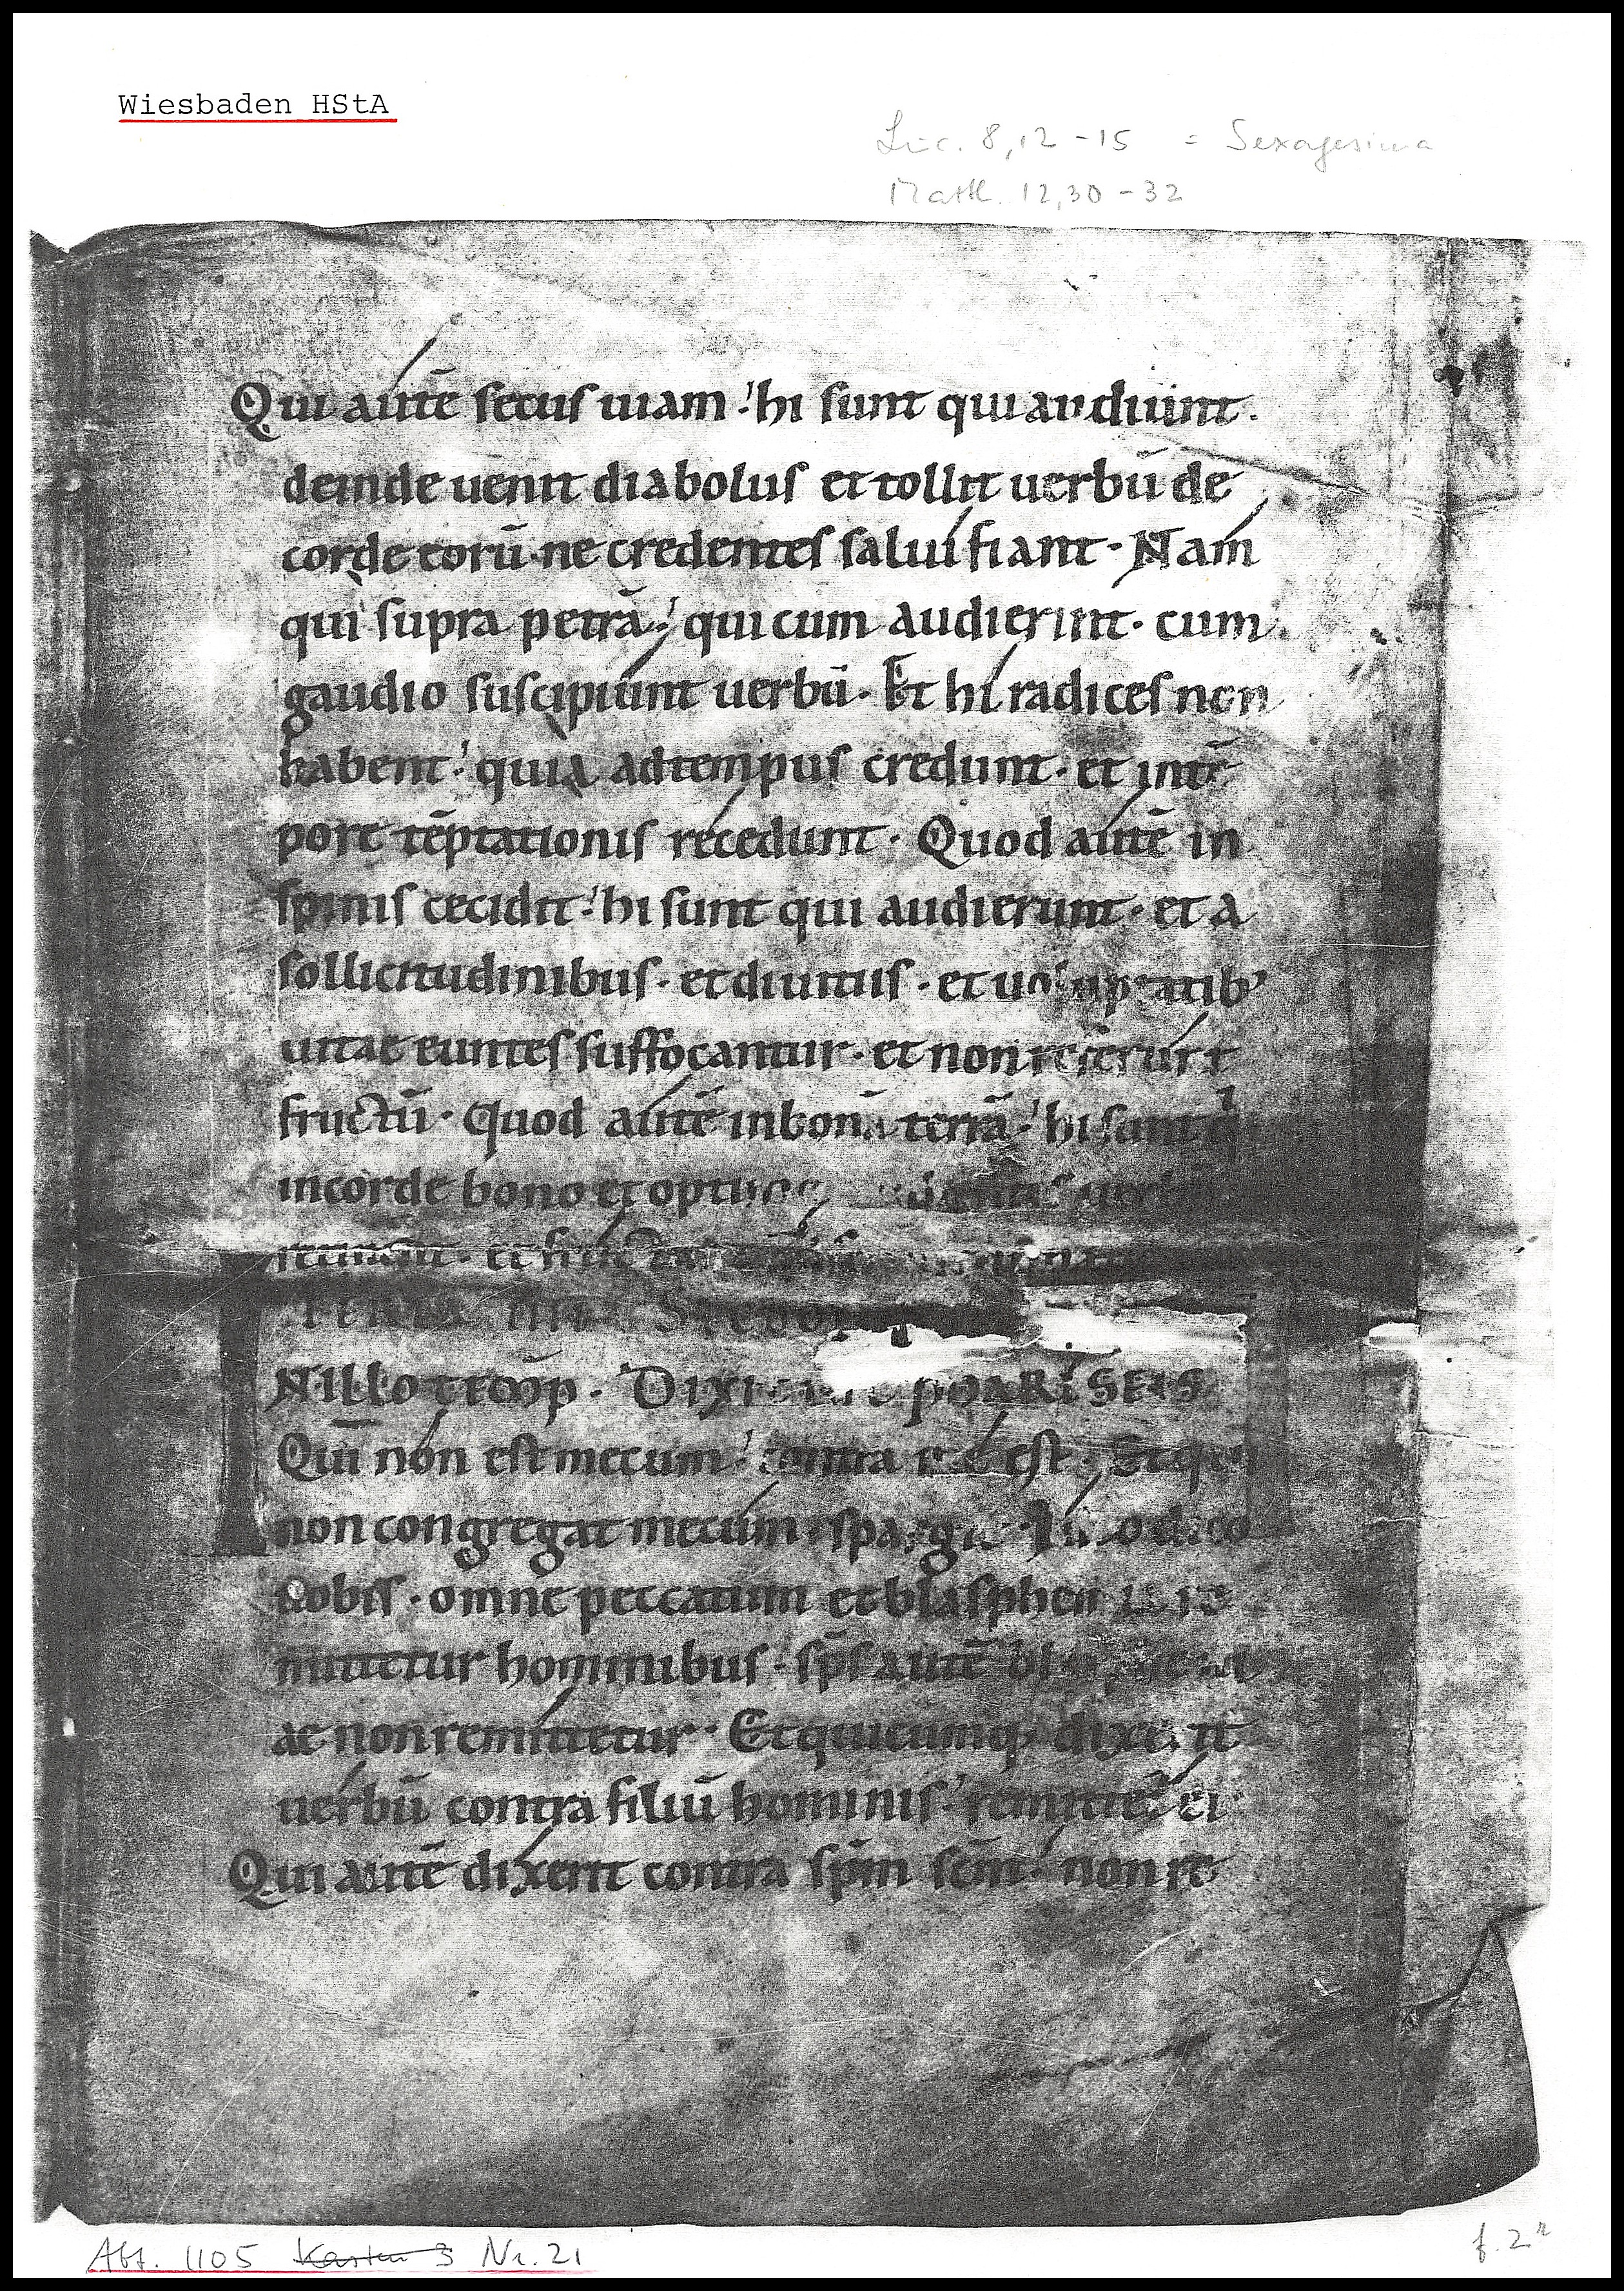 Wiesbaden HStA
Luc. 8,12-15 = Sexagesima
Matth. 12,30-32
Qui aute᷄ secus uiam hi sunt qui audiunt.
deinde uenit diabolus et tollit uerbū de
corde eorū· ne credentes salui fiant· Nam
qui supra petrā· qui cum audierint· cum
gaudio suscipiunt uerbū· Et hi radices non
habent· quia ad tempus credunt· et in tē
pore tēptationis recedunt· Quod autē in
spinis cecidit· hi sunt qui audierunt· et a
sollicitudinibus· et diuitiis· et uoluptatib'
uitae euntes suffocantur· et non referunt
fructū· Quod autē in bona terrā· hi sunt
in corde bono et
retinent· et
FERIA IIII
IN ILLO TEMP· DIXIT PHARISEIS
Qui non est mecum· contra me est· Et qui
non congregat mecum· spargit· Ideo dico
uobis· omne peccatum et blasphemia re
mittetur hominibus· sp̄s autē
ae non remittetur· Et quicumq; dixerit
uerbū contra filiū hominis· remittet̄ ei·
Qui autē dixerit contra sp̄m sc̄m· non re
Abt. 1105 Karton 3 Nr. 21
f. 2r